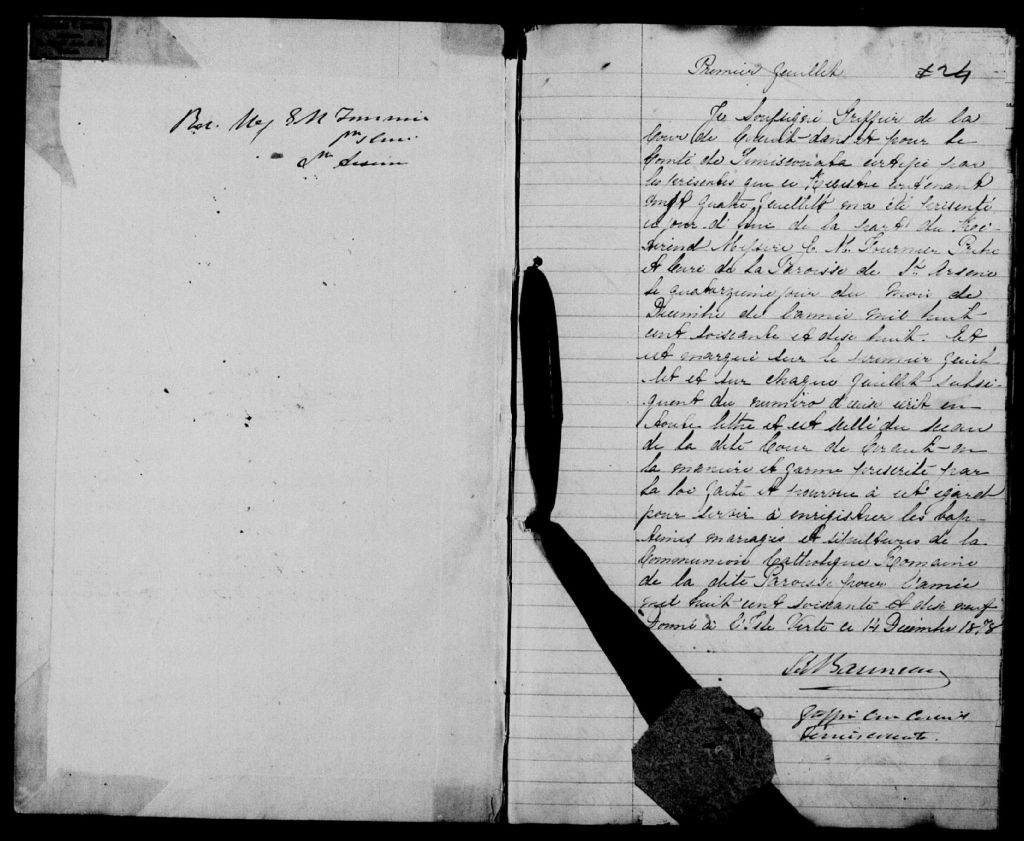 Rev. Mes E N Fournier
Ptre Curé
St Arsène
Premier feuillet
#24
Je Soussigné Greffier de la
Cour de Circuit dans et pour le
Comté de Temiscouata certifie par
les présentes que ce Registre contenant
vingt quatre feuillets m'a été présenté
ce jour d'hui de la part du Rée-
verend Messire C. N. Fournier Prêtre
et Curé de la Paroisse de St Arsene
le quatorzieme jour du mois de
Decembre de l'année mil huit
cent soixante et dix huit. Et
est marqué sur le premier feuil
let et sur chaque feuillet subsé
quent du numero d'iceux écrit en
toute lettre et est scellé du sceau
de la dite Cour de Circuit en
la maniere et forme prescrite par
la loi faite et pourvue à cet égard
pour servir à enregistrer les bap-
temes mariages et sépultures de la
Communion Catholique Romaine
de la dite Paroisse pour l'année
mil huit cent soixante et dix neuf
Donné à l'Isle Verte ce 14 Décembre 1878
Greffier Cour Circuit
Temiscouata.